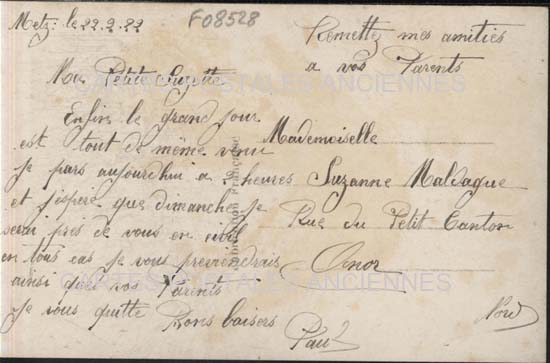 Metz le 22.9.22
F08528
Remettez mes amitiés
a vos Parents
Ma Petite Suzette
CARTES POSTALES ANCIENNES
Enfin le grand jour
est tout de même venu
je pars aujourd'hui a 2 heures
et j'espère que dimanche je
serai près de vous en civil
en tous cas je vous previendrais
ainsi que vos Parents
je vous quitte Bons baisers
Paul
Mademoiselle
Suzanne Maldague
Rue du Petit Canton
Anor
Nord
CARTES POSTALES ANCIENNES